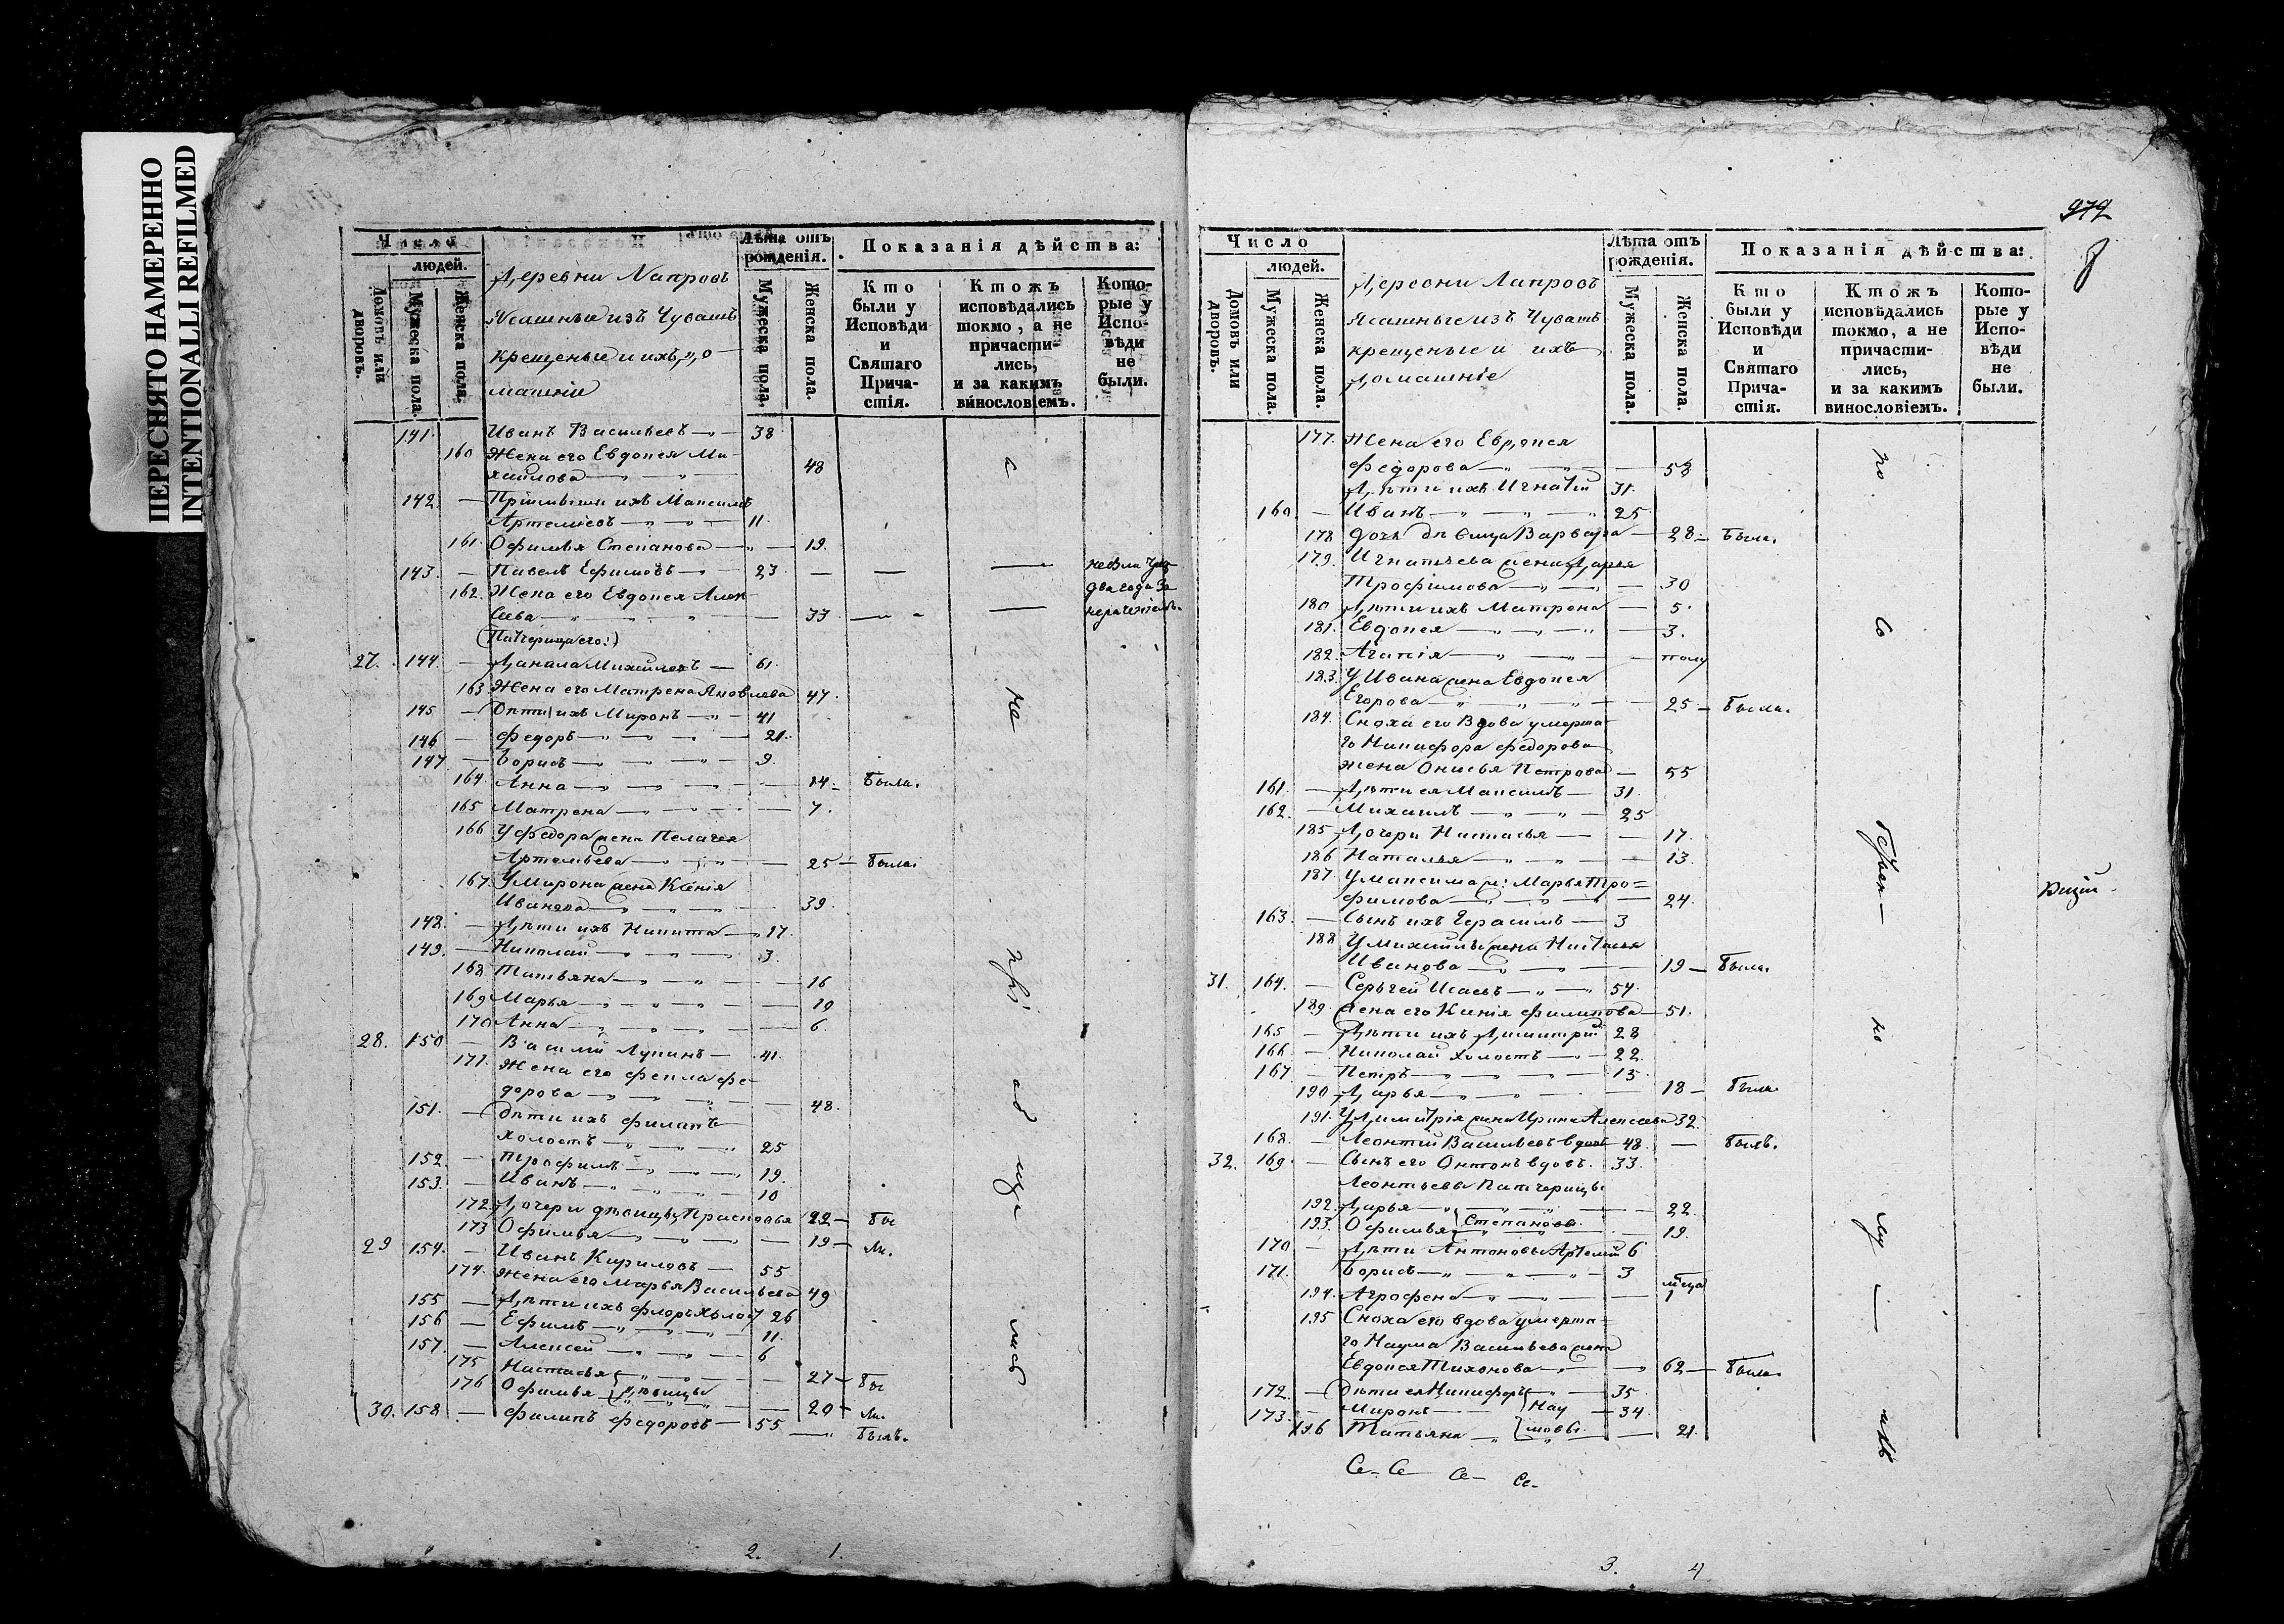 ПЕРЕСНЯТО НАМЕРЕННО
INTENTIONALLI REFILMED
Число
людей.
Домовъ или дворовъ.
Мужеска пола.
Женска пола.
Деревни Лапровъ
Ясашныя изъ Чувашъ
крещеные и ихъ до
машніи
Лѣта отъ рожденія.
Мужеска пола.
Женска пола.
Показанія дѣйства:
Кто были у Исповѣди и Святаго Причастія.
Ктожъ исповѣдались токмо, а не причастились, и за какимъ винословіемъ.
Которые у Исповѣди не были.
141. Иванъ Васильевъ 38
160 Жена его Евдокея Ми-
хайлова 48
142. Пріимышъ ихъ Максимъ
Артеміевъ 11.
161. Офимья Степанова 19.
143. Павелъ Ефимовъ 23.
162. Жена его Евдокея Алек
сиева 33
два года за
(Патчерица его:)
27. 144. Данила Михайловъ 61.
163 Жена его Матрена Яковлева 47.
145 Дѣти ихъ Миронъ 41
146 Федоръ 21.
147 Борисъ 9.
164. Анна 14 была.
165 Матрена 7.
166 У Федора жена Пелагея
Артемьева 25 была.
167. У Мирона жена Ксенія
Иванова 39.
148. Дѣти ихъ Никита 17.
149. Николай 3.
168 Татьяна 16
169 Марья 10
170 Анна 6.
28. 150 Василій Лукинъ 41.
171. Жена его Фекла Фе-
дорова 48.
151. Дѣти ихъ Филатъ
холостъ 25
152. Трофимъ 19.
153. Иванъ 10
172. Дочери дѣвицы Прасковья 22 бы
173 Офимья 19 ли.
29 154. Иванъ Кириловъ 55
174. Жена его Марья Васильева 49
155 Дѣти ихъ Флоръ холост 26
156 Ефимъ 11.
157. Алексей 6
175 Настасья 27 бы
176 Офимья дѣвицы 20 ли.
30. 158 Филипъ Федоровъ 55 былъ.
2. 1.
972
Число
людей.
Домовъ или дворовъ.
Мужеска пола.
Женска пола.
Деревни Лапровъ
Ясашные изъ Чувашъ
крещеные и ихъ
домашніе
Лѣта отъ рожденія.
Мужеска пола.
Женска пола.
Показанія дѣйства:
Кто были у Исповѣди и Святаго Причастія.
Ктожъ исповѣдались токмо, а не причастились, и за какимъ винословіемъ.
Которые у Исповѣди не были.
177. Жена его Евдокея
Федорова 52
Дѣти ихъ Игнатій 31.
160. Иванъ 25
178 Дочь дѣвица Варвара 28 была.
179. Игнатьева жена Дарья
Трофимова 30
180 Дѣти ихъ Матрена 5.
181. Евдокея 3.
182. Агапія полу
183. У Ивана жена Евдокея
Егорова 25 была.
184. Сноха его вдова умерша-
го Никифора Федорова
жена Онисья Петрова 55
161. Дѣти ея Максимъ 31.
162. Михаилъ 25
185 Дочери Настасья 17.
186 Наталья 13.
187. У Максима ж: Марья Тро=
фимова 24.
163. Сынъ ихъ Герасимъ 3
188 У Михайлы жена Настасья
Иванова 19 была.
31. 164. Сергей Исаевъ 54.
189. Жена его Ксенія Филипова 51.
165 Дѣти ихъ Димитрій 28
166 Николай холостъ 22.
167 Петръ 15
190 Дарья 18 была
191. У Димитрія жена Ирина Алексеева 32.
168. Леонтій Васильевъ вдовъ 48. былъ.
32. 169. Сынъ его Онтонъ вдовъ. 33.
Леонтьевы патчерицы
192. Дарья 22.
193. Офимья Степановы 19.
170 Дѣти Антоновы Артемій 6
171. Борисъ 3
194. Агрофена 1
195 Сноха его вдова умерша=
го Наума Васильева жена
Евдокея Тихонова 62 была
172. Дѣти ея Никифоръ 35.
173. Миронъ Нау 34.
196 Татьяна мовы. 21.
3. 4